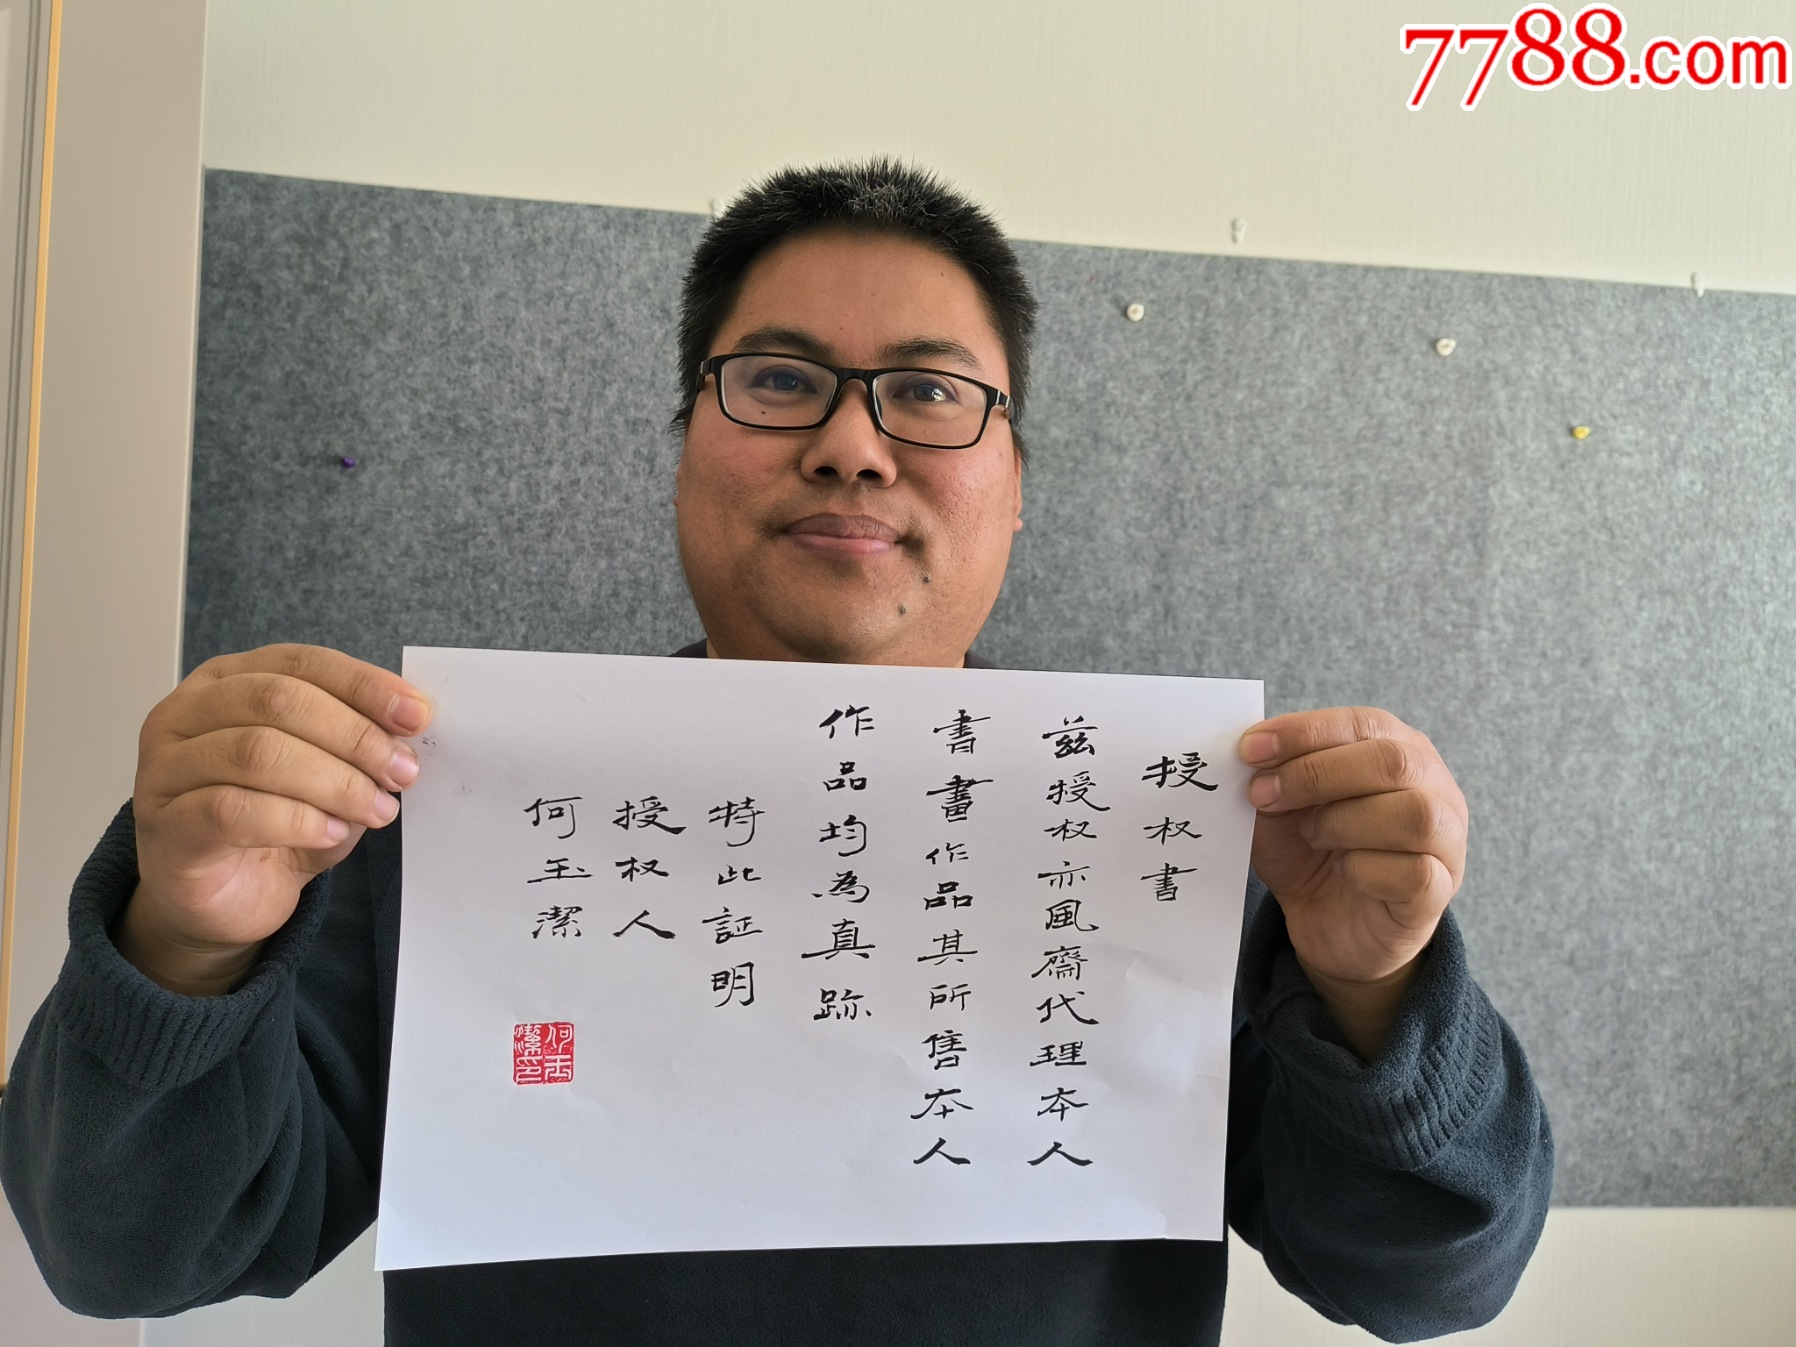 7788.com
授权书
兹授权亦風齋代理本人
書畫作品其所售本人
作品均為真跡
特此証明
授权人
何玉潔
何玉潔印